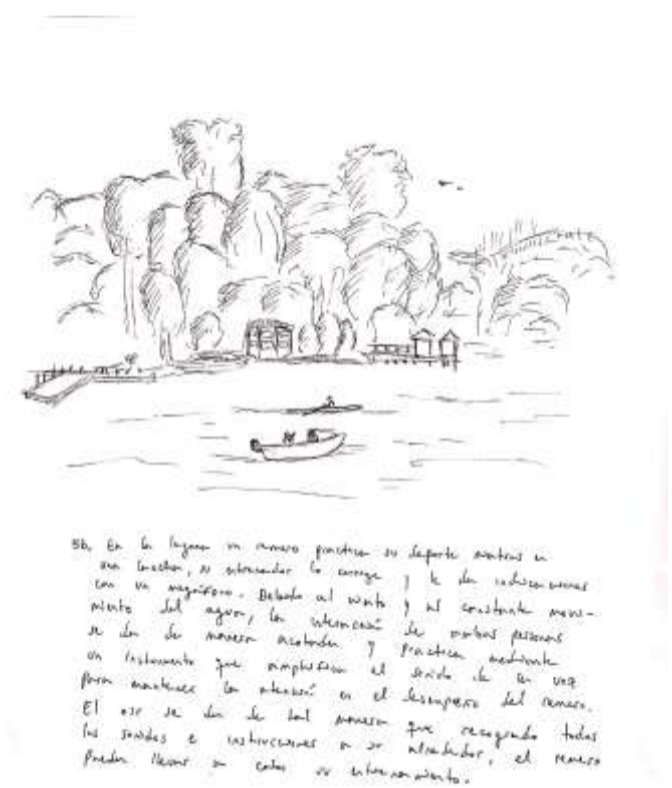 56. En la laguna un remero practica su deporte mientras en
una lancha, su entrenador lo corrige y le da indicaciones
con un megáfono. Debido al viento y al constante movi-
miento del agua, la interacción de ambas personas
se da de manera acotada y practica mediante
un instrumento que amplifica el sonido de la voz
para mantener la atención en el desempeño del remero.
El oír se da de tal manera que recogiendo todos
los sonidos e instrucciones a su alrededor, el remero
pueda llevar a cabo su entrenamiento.